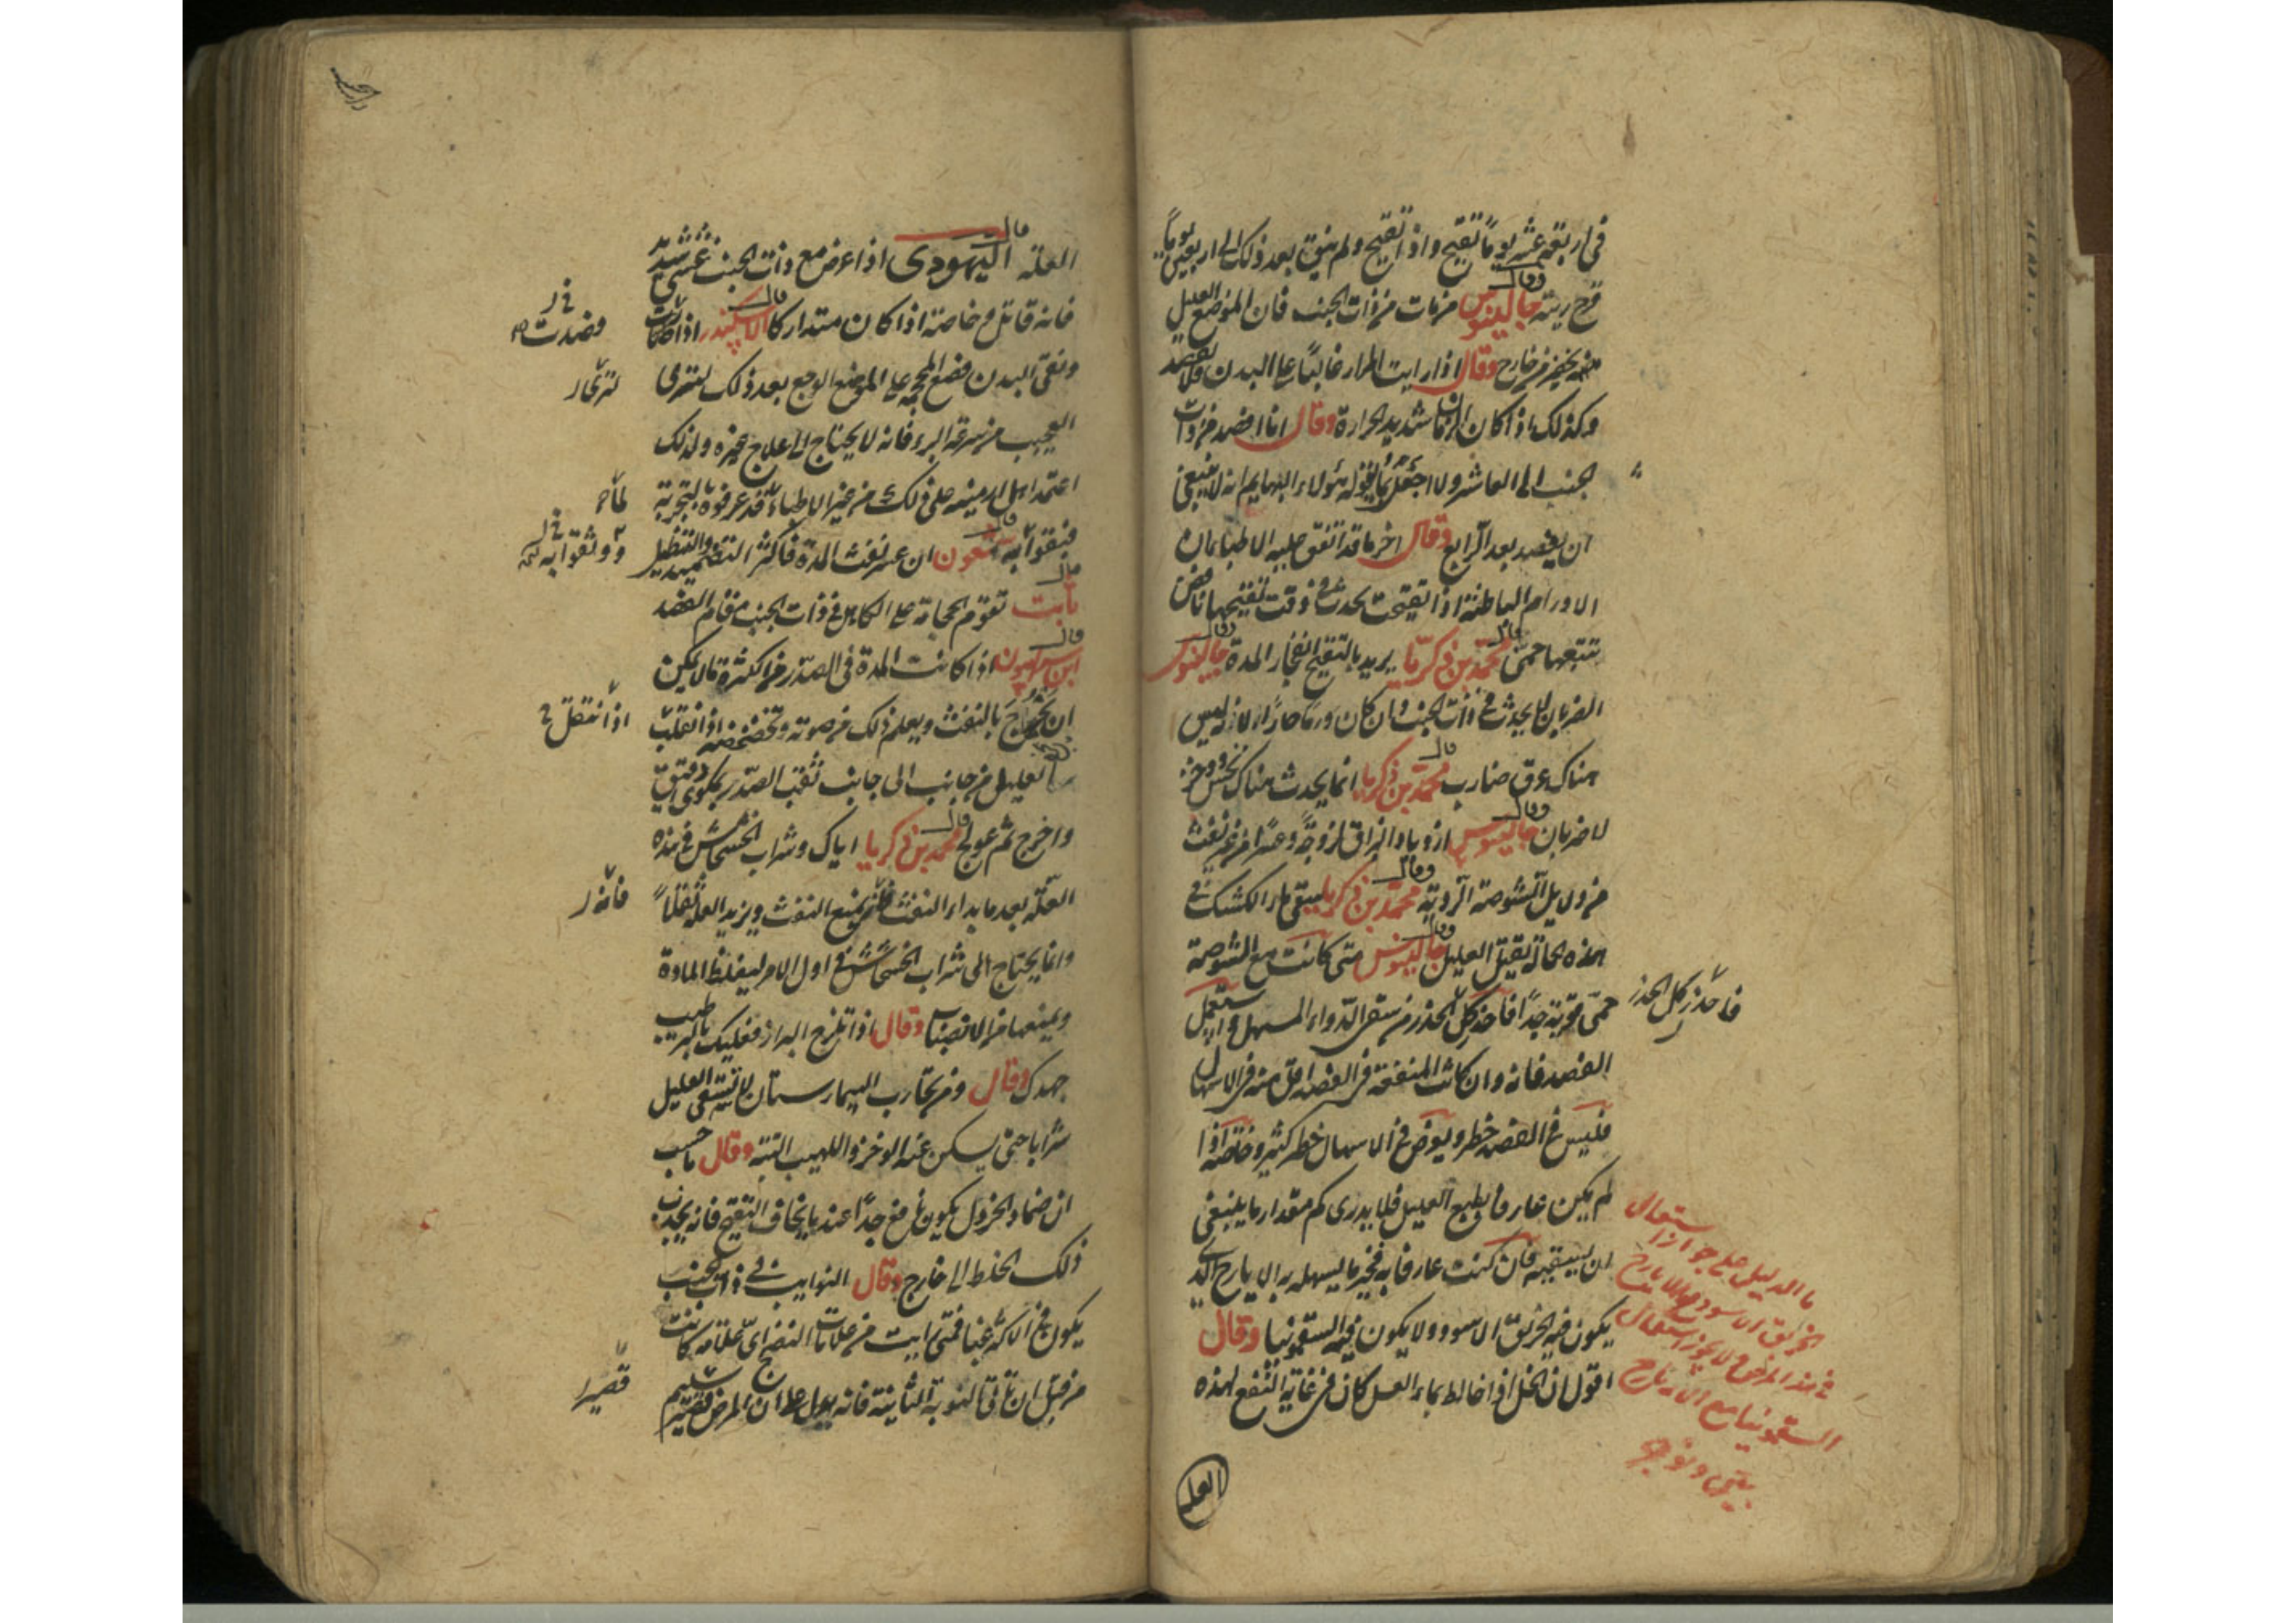 في اربعة عشر يوماً تقيح واذا تقيح ولم ينق بعد ذلك الى اربعين يوماً
قرح ريته وقال جالينوس من مات من ذات الجنب فان الموضع العليل
منه يخضر من خارج وقال اذا رايت المرار غالباً على البدن فلا تفصد
وكذلك اذا كان الزمان شديد الحرارة وقال انا افصد من ذات
الجنب الى العاشر ولا احفل بما يقوله هؤلاء البهايم انه لا ينبغي
ان يفصد بعد الرابع وقال اخر ما قد اتفق عليه الاطباء بان
الاورام الباطنة اذا تقيحت يحدث في وقت تقيحها نافض
تتبعها حمى قال محمد بن زكريا يريد بالتقيح انفجار المدة وقال جالينوس
الضربان لا يحدث في ذات الجنب وان كان ورما حارا لانه ليس
هناك عرق ضارب قال محمد بن زكريا انما يحدث هناك نخس ووخز
لا ضربان وقال جالينوس ازدياد البزاق لزوجة وعسرا من غير نفث
من دليل الشوصة الردية وقال محمد بن زكريا سقي ماء الكشك في
هذه الحالة يقتل العليل وقال جالينوس متى كانت مع الشوصة
حمى محرقة جداً فاحذر كل الحذر من سقي الدواء المسهل واستعمل
الفصد فانه وان كانت المنفعة في الفصد اقل منه في الاسهال
فليس في الفصد خطر ويعرض في الاسهال خطر كثير وخاصة اذا
لم يكن عارفا بطبع العليل فلا يدرى كم مقدار ما ينبغي
ان يسقيه فان كنت عارفا به فخير ما يسهله به الايارج الذي
يكون فيه الخربق الاسود ولا يكون فيه السقمونيا وقال
اقول ان الخل اذا خالط بماء العسل كان في غاية النفع لهذه
فاحذر كل الحذر
ما الدليل على جواز استعمال
الخربق الاسود مع الايارج
في هذا المرض ولا يجوز استعمال
السقمونيا مع الايارج
العلة
العلة قال اليهودي اذا عرض مع ذات الجنب غشي شديد
فانه قاتل وخاصة اذا كان متداركا قال الاسكندر اذا
ونقي البدن فضع المحجمة على الموضع الوجع بعد ذلك لترى
العجب من سرعة البرء فانه لا يحتاج الى علاج غيره ولذلك
اعتمد اهل ارمينية على ذلك من غير الاطباء قد عرفوه بالتجربة
فيثقوا به قال شمعون ان عسر نفث المدة فاكثر التضميد والتنطيل
قال ثابت تقوم الحجامة على الكاهل في ذات الجنب مقام الفصد
قال ابن سرابيون اذا كانت المدة في الصدر من الكثرة ما لا يمكن
ان يخرج بالنفث ويعلم ذلك من صوته وتخضخضه اذا انقلب
العليل من جانب الى جانب ثقب الصدر بمكوى دقيق
واخرج ثم عولج قال محمد بن زكريا اياك وشراب الخشخاش في هذه
العلة بعد ما بداء النفث فانه يمنع النفث ويزيد العلة ثقلاً
وانما يحتاج الى شراب الخشخاش في اول الامر ليغلظ المادة
ويمنعها من الانصباب وقال اذا تلزج البزاز فعليك بالترطيب
جهدك وقال ومن تجارب البيمارستان لا تسقى العليل
شرابا حتى يسكن عنه الوخز واللهيب البتة وقال احسب
ان ضماد الخردل يكون نافع جداً عند ما يخاف التقيح فانه يجذب
ذلك الخلط الى خارج وقال النوايب في ذات الجنب
يكون في الاكثر غبا فمتى رايت من علامات النضج اي علامة كانت
من قبل ان تاتي النوبة الثانية فانه يدل على ان المرض قصير سليم
اذا انتقل
فانه
قصير